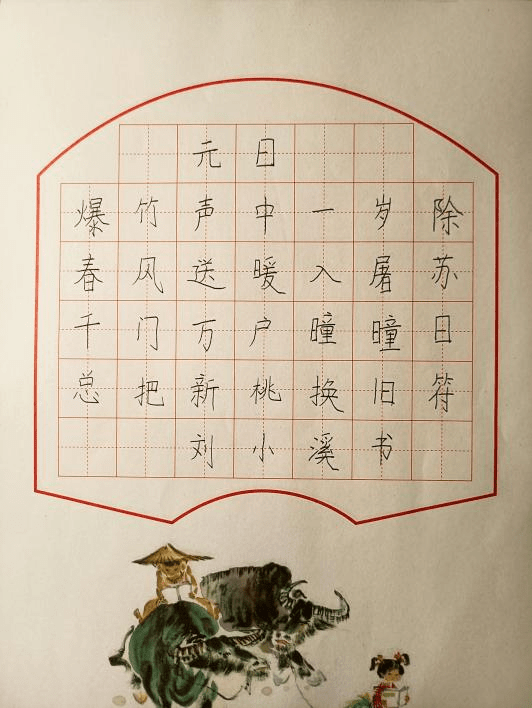 元日
爆竹声中一岁除
春风送暖入屠苏
千门万户瞳瞳日
总把新桃换旧符
刘小溪书